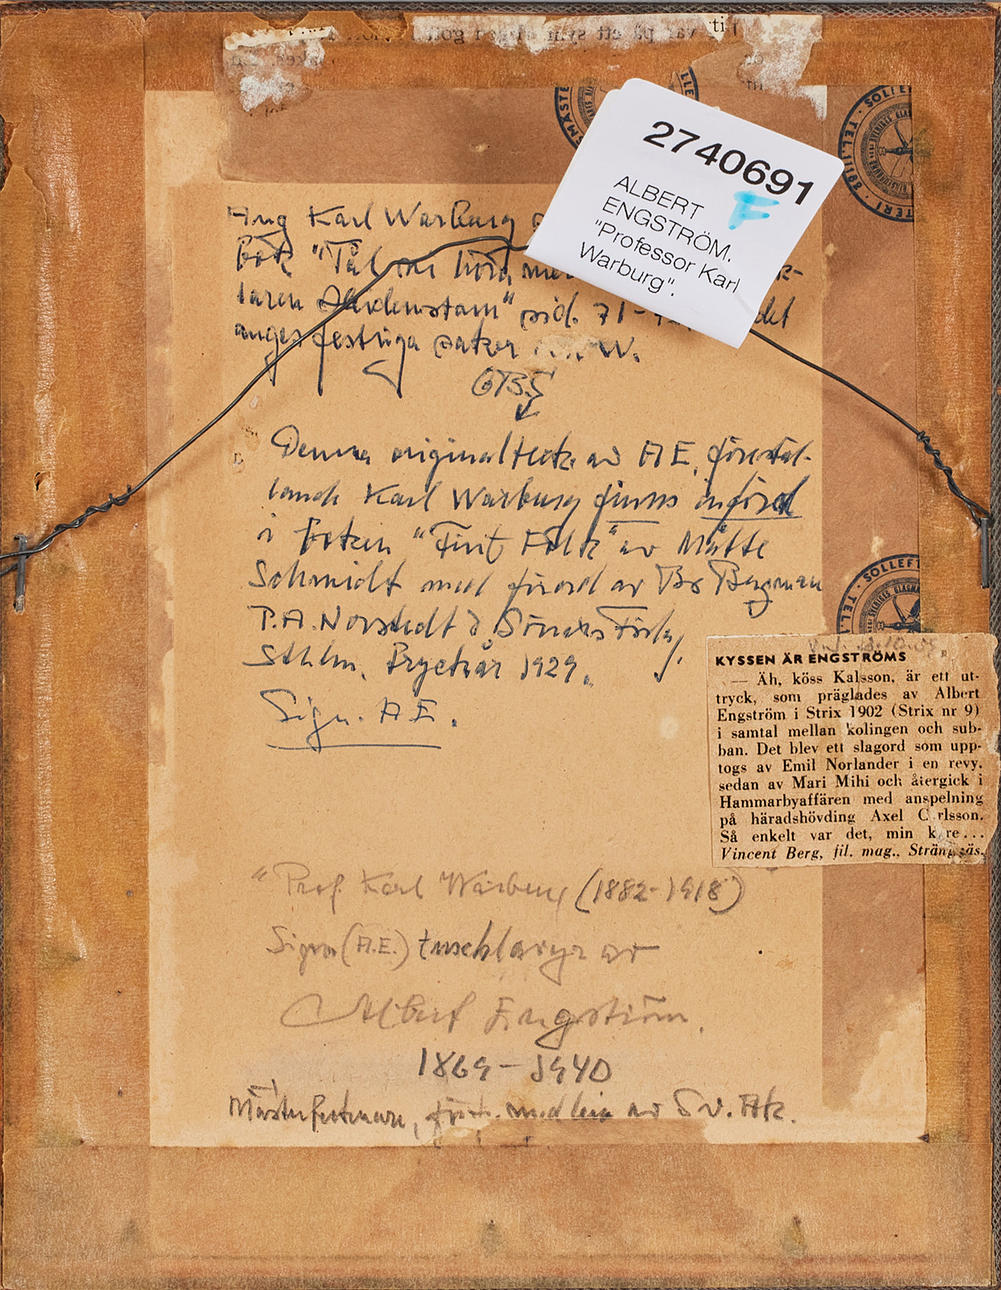 2740691
F
ALBERT
ENGSTRÖM.
"Professor Karl
Warburg".
SOLLEFT
TEL.
Ang Karl Warburg
bok "Tal
laren Heidenstam" sid. 71-
anges festliga saker om W.
OBS
Denna originalteckn av AE, förestäl-
lande Karl Warburg finns införd
i boken "Fint Folk" av Mätte
Schmidt med förord av Bo Bergman
P.A. Norstedt & Söners Förlag,
Sthlm. Tryckår 1929.
Sign. A.E.
SOLLEFT
TEL.
KYSSEN ÄR ENGSTRÖMS
— Äh, köss Kalsson, är ett ut-
tryck, som präglades av Albert
Engström i Strix 1902 (Strix nr 9)
i samtal mellan kolingen och sub-
ban. Det blev ett slagord som upp-
togs av Emil Norlander i en revy,
sedan av Mari Mihi och återgick i
Hammarbyaffären med anspelning
på häradshövding Axel C rlsson.
Så enkelt var det, min k re...
Vincent Berg, fil. mag., Strängnäs.
"Prof. Karl Warburg (1882-1918)
Sign (A.E.) tuschlavyr av
Albert Engström.
1869-1940
Mästertecknare, förf. medlem av Sv. Ak.